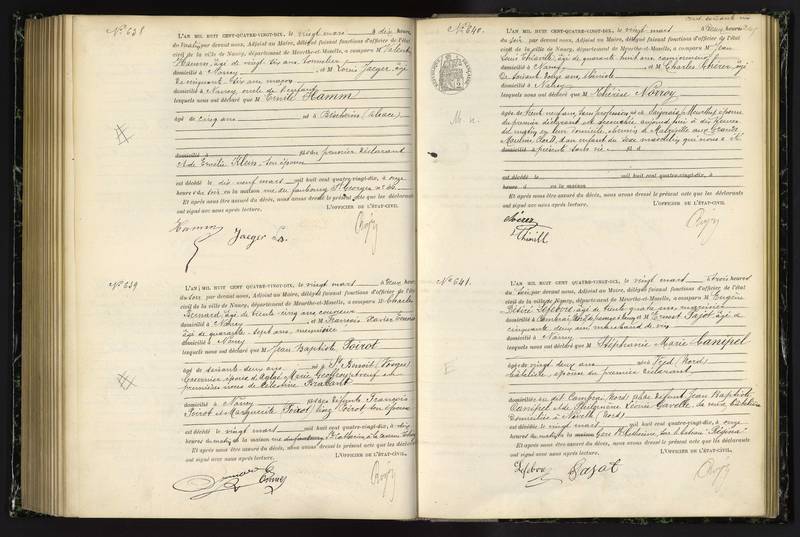 No 638
L'AN MIL HUIT CENT QUATRE-VINGT-DIX, le vingt mars à dix heures
du matin, par devant nous, Adjoint au Maire, délégué faisant fonctions d'officier de l'état
civil de la ville de Nancy, département de Meurthe-et-Moselle, a comparu M
Hamm, âgé de vingt six ans, tonnelier
domicilié à Nancy et M Louis Jaeger, âgé
de cinquante six ans, maçon
domicilié à Nancy, oncle de l'enfant
lesquels nous ont déclaré que M Ernest Hamm
âgé de cinq ans né à Bischheim (Alsace)
domicilié à fils du premier déclarant
& de Emélie Klein, son épouse
est décédé le dix neuf mars mil huit cent quatre-vingt-dix, à onze
heures du soir en la maison rue du faubourg St Georges no
Et après nous être assuré du décès, nous avons dressé le présent acte que les déclarants
ont signé avec nous après lecture. L'OFFICIER DE L'ÉTAT-CIVIL.
Hamm
Jaeger Ls
No 639
L'AN MIL HUIT CENT QUATRE-VINGT-DIX, le vingt mars à deux heures
du soir, par devant nous, Adjoint au Maire, délégué faisant fonctions d'officier de l'état
civil de la ville de Nancy, département de Meurthe-et-Moselle, a comparu M Charles
Bernard, âgé de trente cinq ans, couvreur
domicilié à Nancy et M François Xavier
âgé de quarante sept ans, menuisier
domicilié à Nancy
lesquels nous ont déclaré que M Jean Baptiste Poirot
âgé de soixante deux ans né à St Benoît (Vosges)
premières noces de Célestine Brabant
domicilié à Nancy fils des défunts François
Poirot et Marguerite Poirot
est décédé le vingt mars mil huit cent quatre-vingt-dix, à dix
heures du matin en la maison
Et après nous être assuré du décès, nous avons dressé le présent acte que les déclarants
ont signé avec nous après lecture. L'OFFICIER DE L'ÉTAT-CIVIL.
No 640.
L'AN MIL HUIT CENT QUATRE-VINGT-DIX, le vingt mars à deux heures
du soir par devant nous, Adjoint au Maire, délégué faisant fonctions d'officier de l'état
civil de la ville de Nancy, département de Meurthe-et-Moselle, a comparu M Jean
Louis Thirille âgé de quarante huit ans, camionneur
domicilié à Nancy et M Charles Chérer, âgé
de soixante
domicilié à Nancy
lesquels nous ont déclaré que M Thérèse Noirey
âgée de trente neuf ans, sans profession née à (Meurthe) épouse
du premier déclarant est accouchée aujourd'hui à dix heures
du matin en leur domicile, chemin de Malzéville aux Grands
Moulins, d'un enfant du sexe masculin qui nous a été
présenté sans vie
est décédé le mil huit cent quatre-vingt-dix, à
heure en la maison
Et après nous être assuré du décès, nous avons dressé le présent acte que les déclarants
ont signé avec nous après lecture. L'OFFICIER DE L'ÉTAT-CIVIL.
Chérer
No 641.
L'AN MIL HUIT CENT QUATRE-VINGT-DIX, le vingt mars à trois heures
du soir par devant nous, Adjoint au Maire, délégué faisant fonctions d'officier de l'état
civil de la ville de Nancy, département de Meurthe-et-Moselle, a comparu M Eugène
Désiré Lefebvre, âgé de trente quatre ans, marinier
domicilié à Cambrai (Nord) et M Ernest Pajot âgé de
cinquante deux ans, marchand de vin
domicilié à Nancy
lesquels nous ont déclaré que M Stéphanie Marie Canipel
âgée de vingt deux ans née à (Nord)
Batelière, épouse du premier déclarant
domiciliée au dit Cambrai (Nord) fille de défunt Jean Baptiste
Canipel & de Léonie Gavelle, sa veuve, batelière
domiciliée à (Nord)
est décédée le vingt mars mil huit cent quatre-vingt-dix, à onze
heures du matin en la maison Gare Ste Catherine, sur le bateau "Régina"
Et après nous être assuré du décès, nous avons dressé le présent acte que les déclarants
ont signé avec nous après lecture. L'OFFICIER DE L'ÉTAT-CIVIL.
Lefebvre Pajot